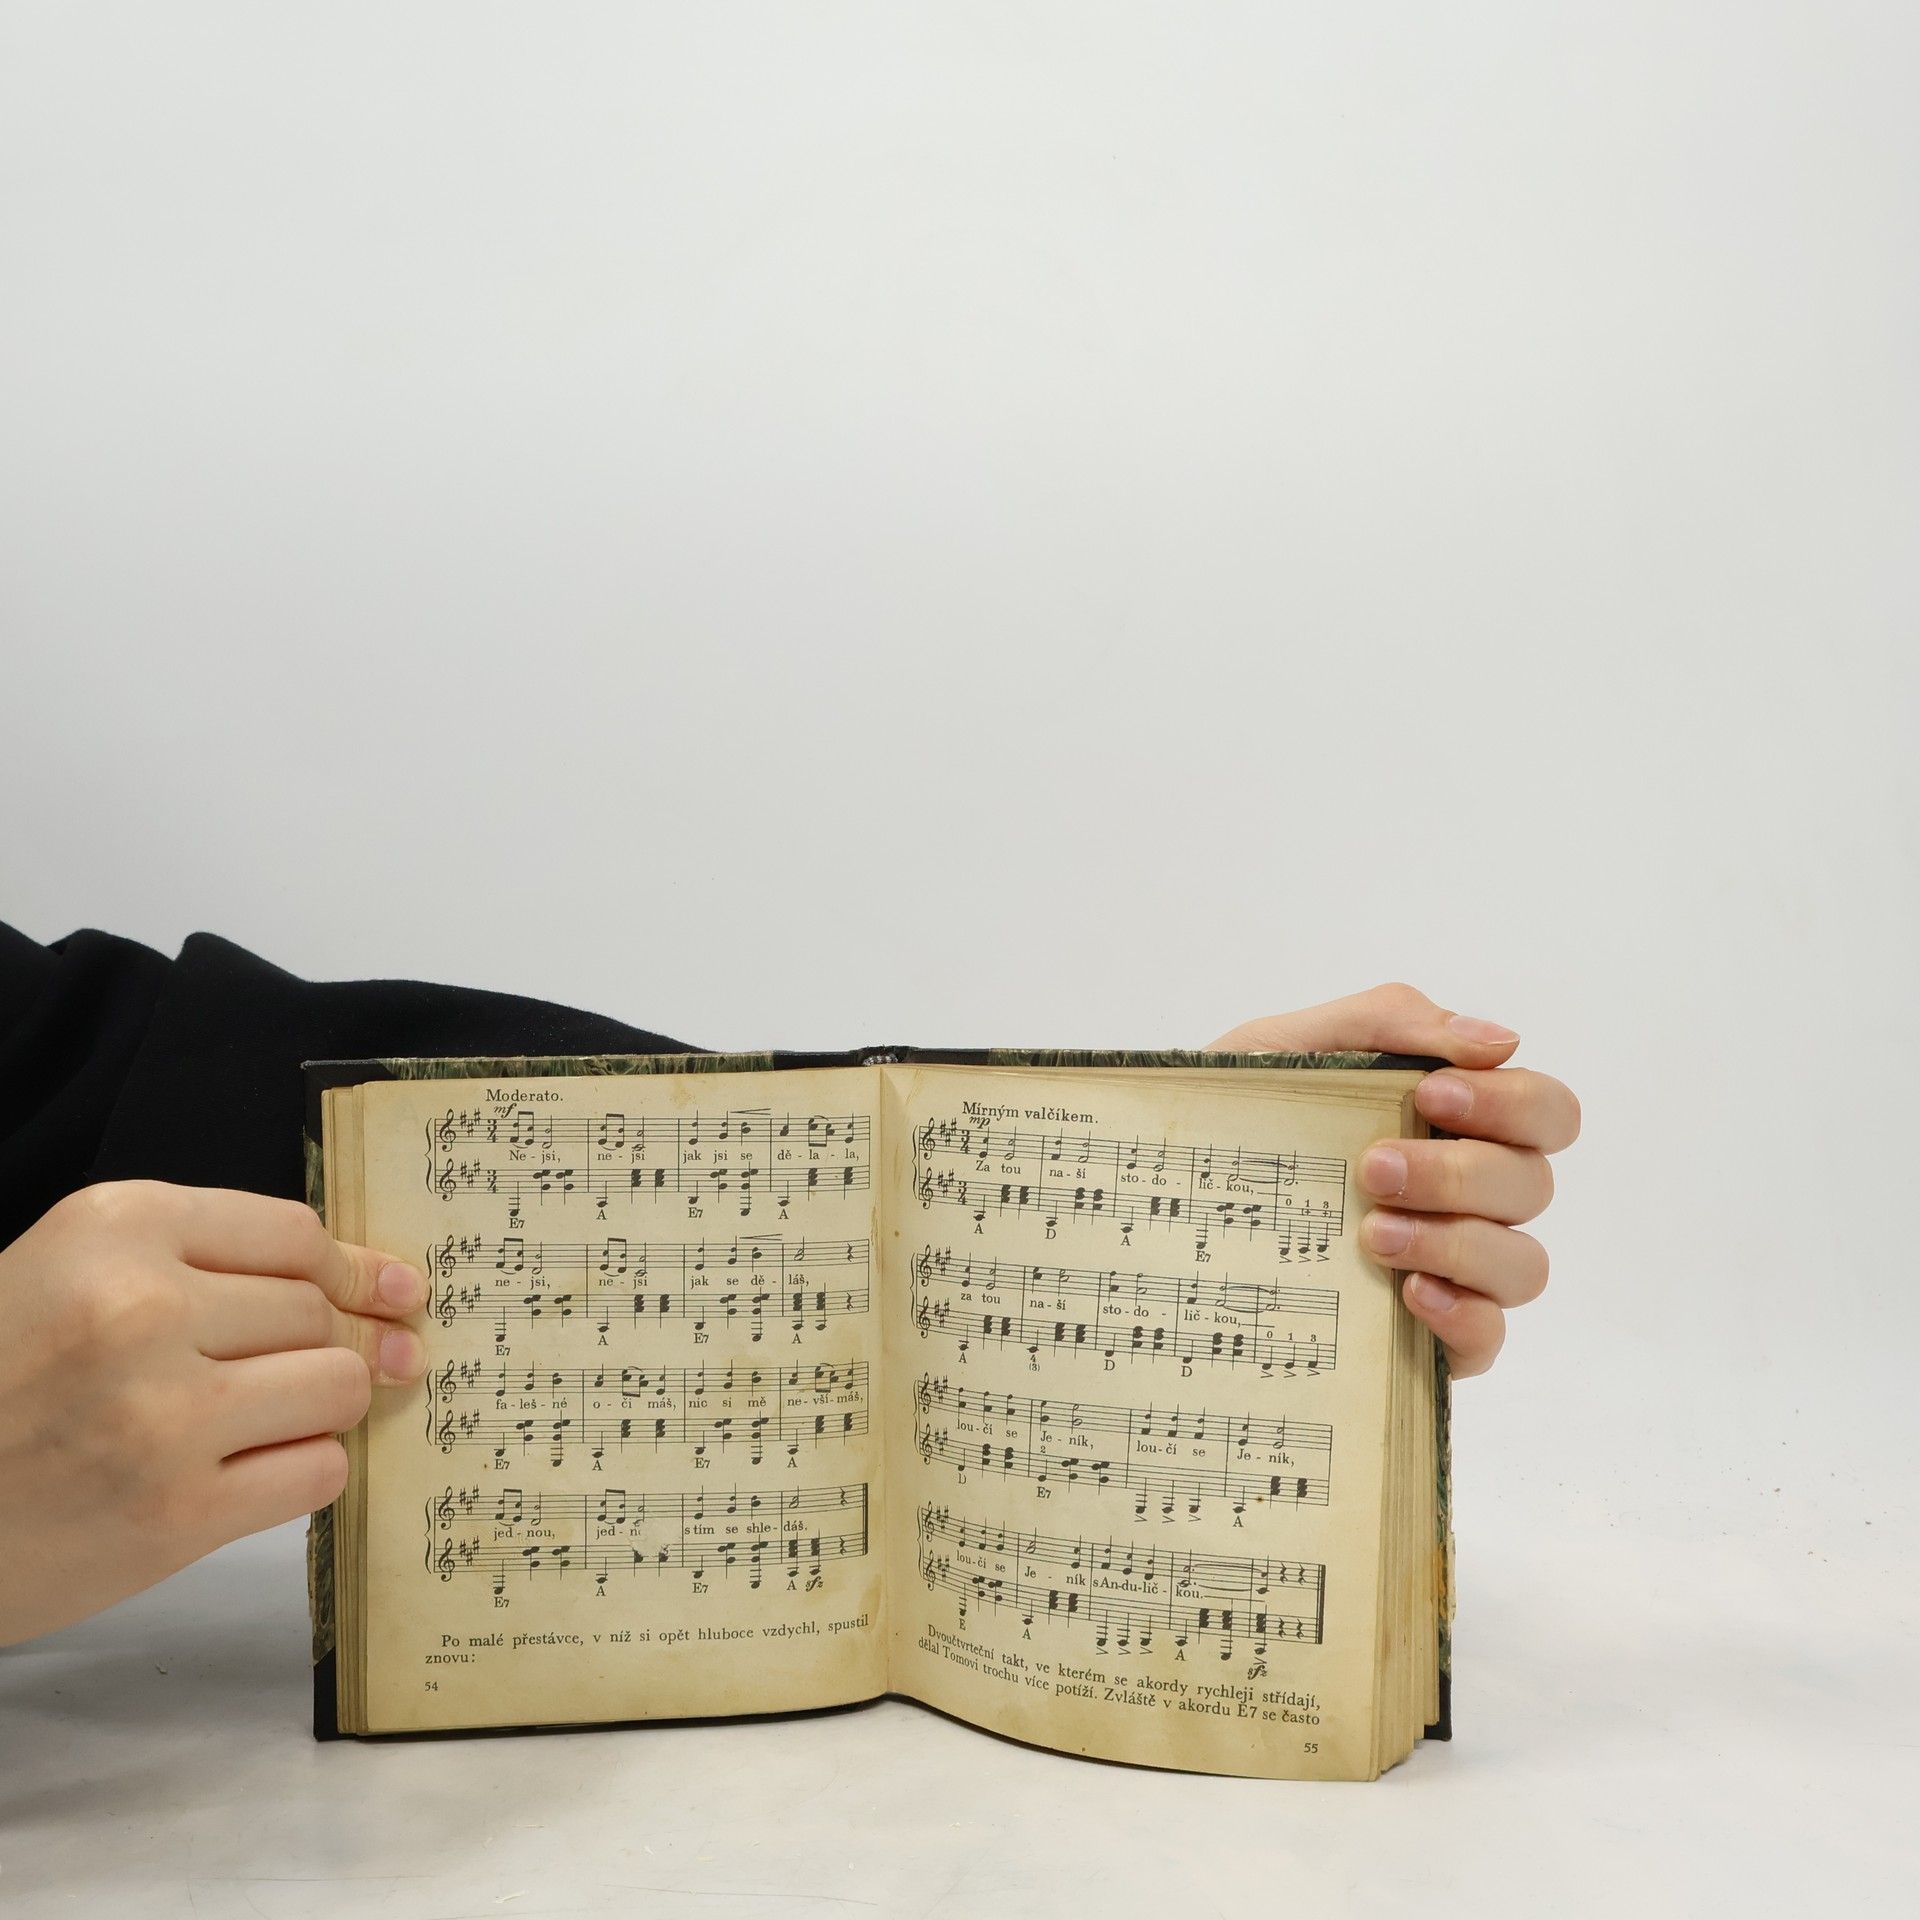 Moderato.
mf
Ne - jsi, ne - jsi jak jsi se dě - la - la,
E7 A E7 A
ne - jsi, ne - jsi jak se dě - láš,
E7 A E7 A
fa - leš - né o - či máš, nic si mě ne - vší - máš,
E7 A E7 A
jed - nou, jed - s tím se shle - dáš.
E7 A E7 A sfz
Po malé přestávce, v níž si opět hluboce vzdychl, spustil
znovu:
54
Mírným valčíkem.
mp
Za tou na - ší sto - do - lič - kou,
0 1 3
A D A E7
za tou na - ší sto - do - lič - kou,
0 1 3
A 4 D D
(3)
lou - čí se Je - ník, lou - čí se Je - ník,
2
D E7 A
lou - čí se Je - ník s An - du - lič - kou.
E A A sfz
Dvoučtvrteční takt, ve kterém se akordy rychleji střídají,
dělal Tomovi trochu více potíží. Zvláště v akordu E7 se často
55